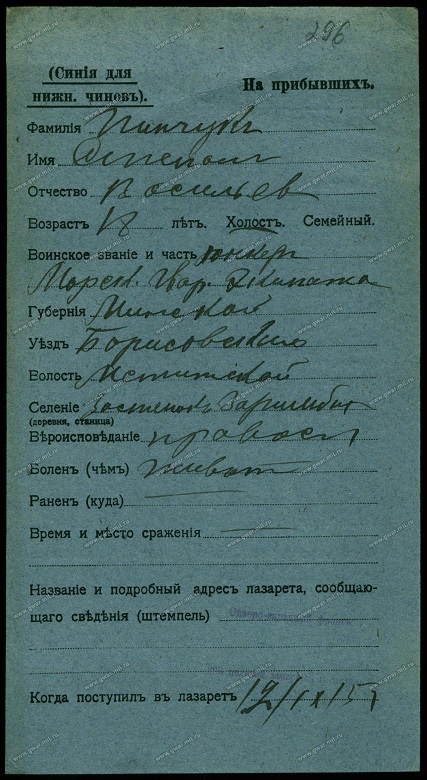 296
(Синія для
нижн. чиновъ).
На прибывшихъ.
Фамилія Пинчукъ
Имя Степан
Отчество Васильев
Возрастъ 18 лѣтъ. Холостъ. Семейный.
Воинское званіе и часть юнкеръ
Морск. Экипажа
Губернія Минской
Уѣздъ Борисовскаго
Волость
Селеніе Застенокъ
(деревня, станица)
Вѣроисповѣданіе правосл
Боленъ (чѣмъ) живот
Раненъ (куда)
Время и мѣсто сраженія
Названіе и подробный адресъ лазарета, сообщаю-
щаго свѣдѣнія (штемпель)
Когда поступил въ лазаретъ 12/IX 15 г
www.gwar.mil.ru